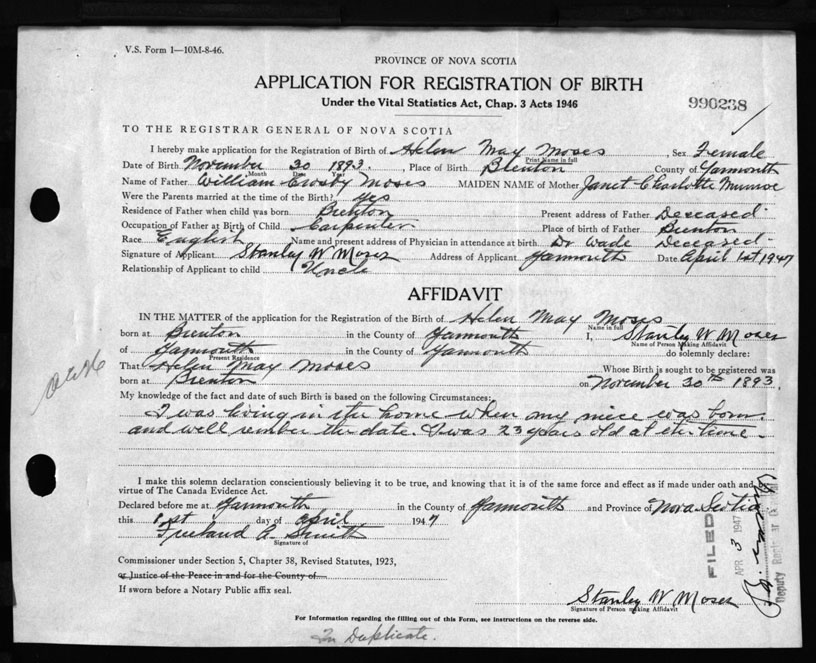 V.S. Form 1—10M-8-46.
PROVINCE OF NOVA SCOTIA
APPLICATION FOR REGISTRATION OF BIRTH
Under the Vital Statistics Act, Chap. 3 Acts 1946
990238
TO THE REGISTRAR GENERAL OF NOVA SCOTIA
I hereby make application for the Registration of Birth of Helen May Moses, Sex Female
Print Name in full
Date of Birth November 30 1893, Place of Birth Brenton County of Yarmouth
Month Date Year
Name of Father William Crosby Moses MAIDEN NAME of Mother Janet Charlotte Munroe
Were the Parents married at the time of the Birth? yes
Residence of Father when child was born Brenton Present address of Father Deceased
Occupation of Father at Birth of Child Carpenter Place of birth of Father Brenton
Race English Name and present address of Physician in attendance at birth Dr Wade Deceased
Signature of Applicant Stanley W Moses Address of Applicant Yarmouth Date April 1st 1947
Relationship of Applicant to child Uncle
AFFIDAVIT
IN THE MATTER of the application for the Registration of the Birth of Helen May Moses
Name in full
born at Brenton in the County of Yarmouth I, Stanley W Moses
Name of Person Making Affidavit
of Yarmouth in the County of Yarmouth do solemnly declare:
Present Residence
That Helen May Moses Whose Birth is sought to be registered was
born at Brenton on November 30th 1893.
My knowledge of the fact and date of such Birth is based on the following Circumstances:
I was living in the home when my niece was born.
and well rember the date. I was 23 years old at the time.
I make this solemn declaration conscientiously believing it to be true, and knowing that it is of the same force and effect as if made under oath and by
virtue of The Canada Evidence Act.
Declared before me at Yarmouth in the County of Yarmouth and Province of Nova Scotia
this 1st day of April 1947
Freeland A. Smith
Signature of
Commissioner under Section 5, Chapter 38, Revised Statutes, 1923,
or Justice of the Peace in and for the County of
If sworn before a Notary Public affix seal.
FILED
APR 3 1947
Deputy Registrar
Stanley W Moses
Signature of Person making Affidavit
For Information regarding the filling out of this Form, see instructions on the reverse side.
In Duplicate.